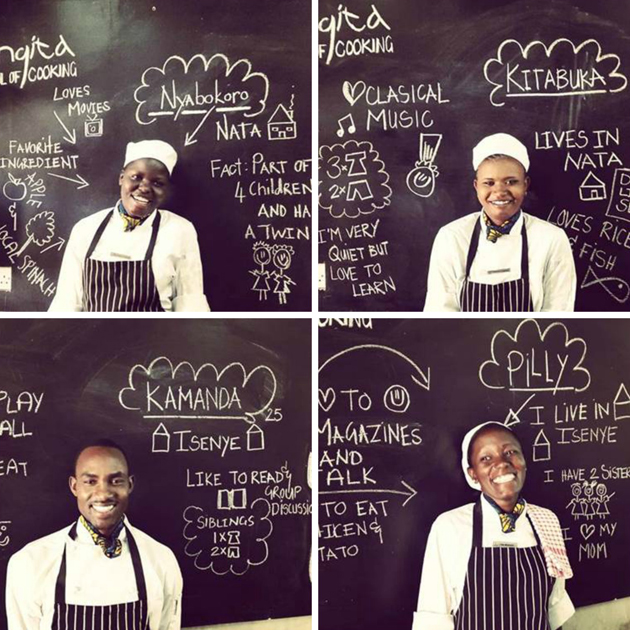 ngita
L OF COOKING
LOVES
MOVIES
NYABOKORO
NATA
FAVORITE
INGREDIENT
APPLE
LOCAL SPINACH
FACT: PART OF
4 CHILDREN
AND HA
A TWIN
ngita
F COOKING
CLASICAL
MUSIC
KITABUKA
LIVES IN
NATA
3x
2x
I'M VERY
QUIET BUT
LOVE TO
LEARN
LOVES RICE
& FISH
PLAY
ALL
EAT
KAMANDA
25
ISENYE
LIKE TO READ &
GROUP
DISCUSSIO
SIBLINGS
1x
2x
KING
PILLY
TO
MAGAZINES
AND
ALK
I LIVE IN
ISENYE
TO EAT
ICEN &
TATO
I HAVE 2 SISTER
I ♡ MY
MOM